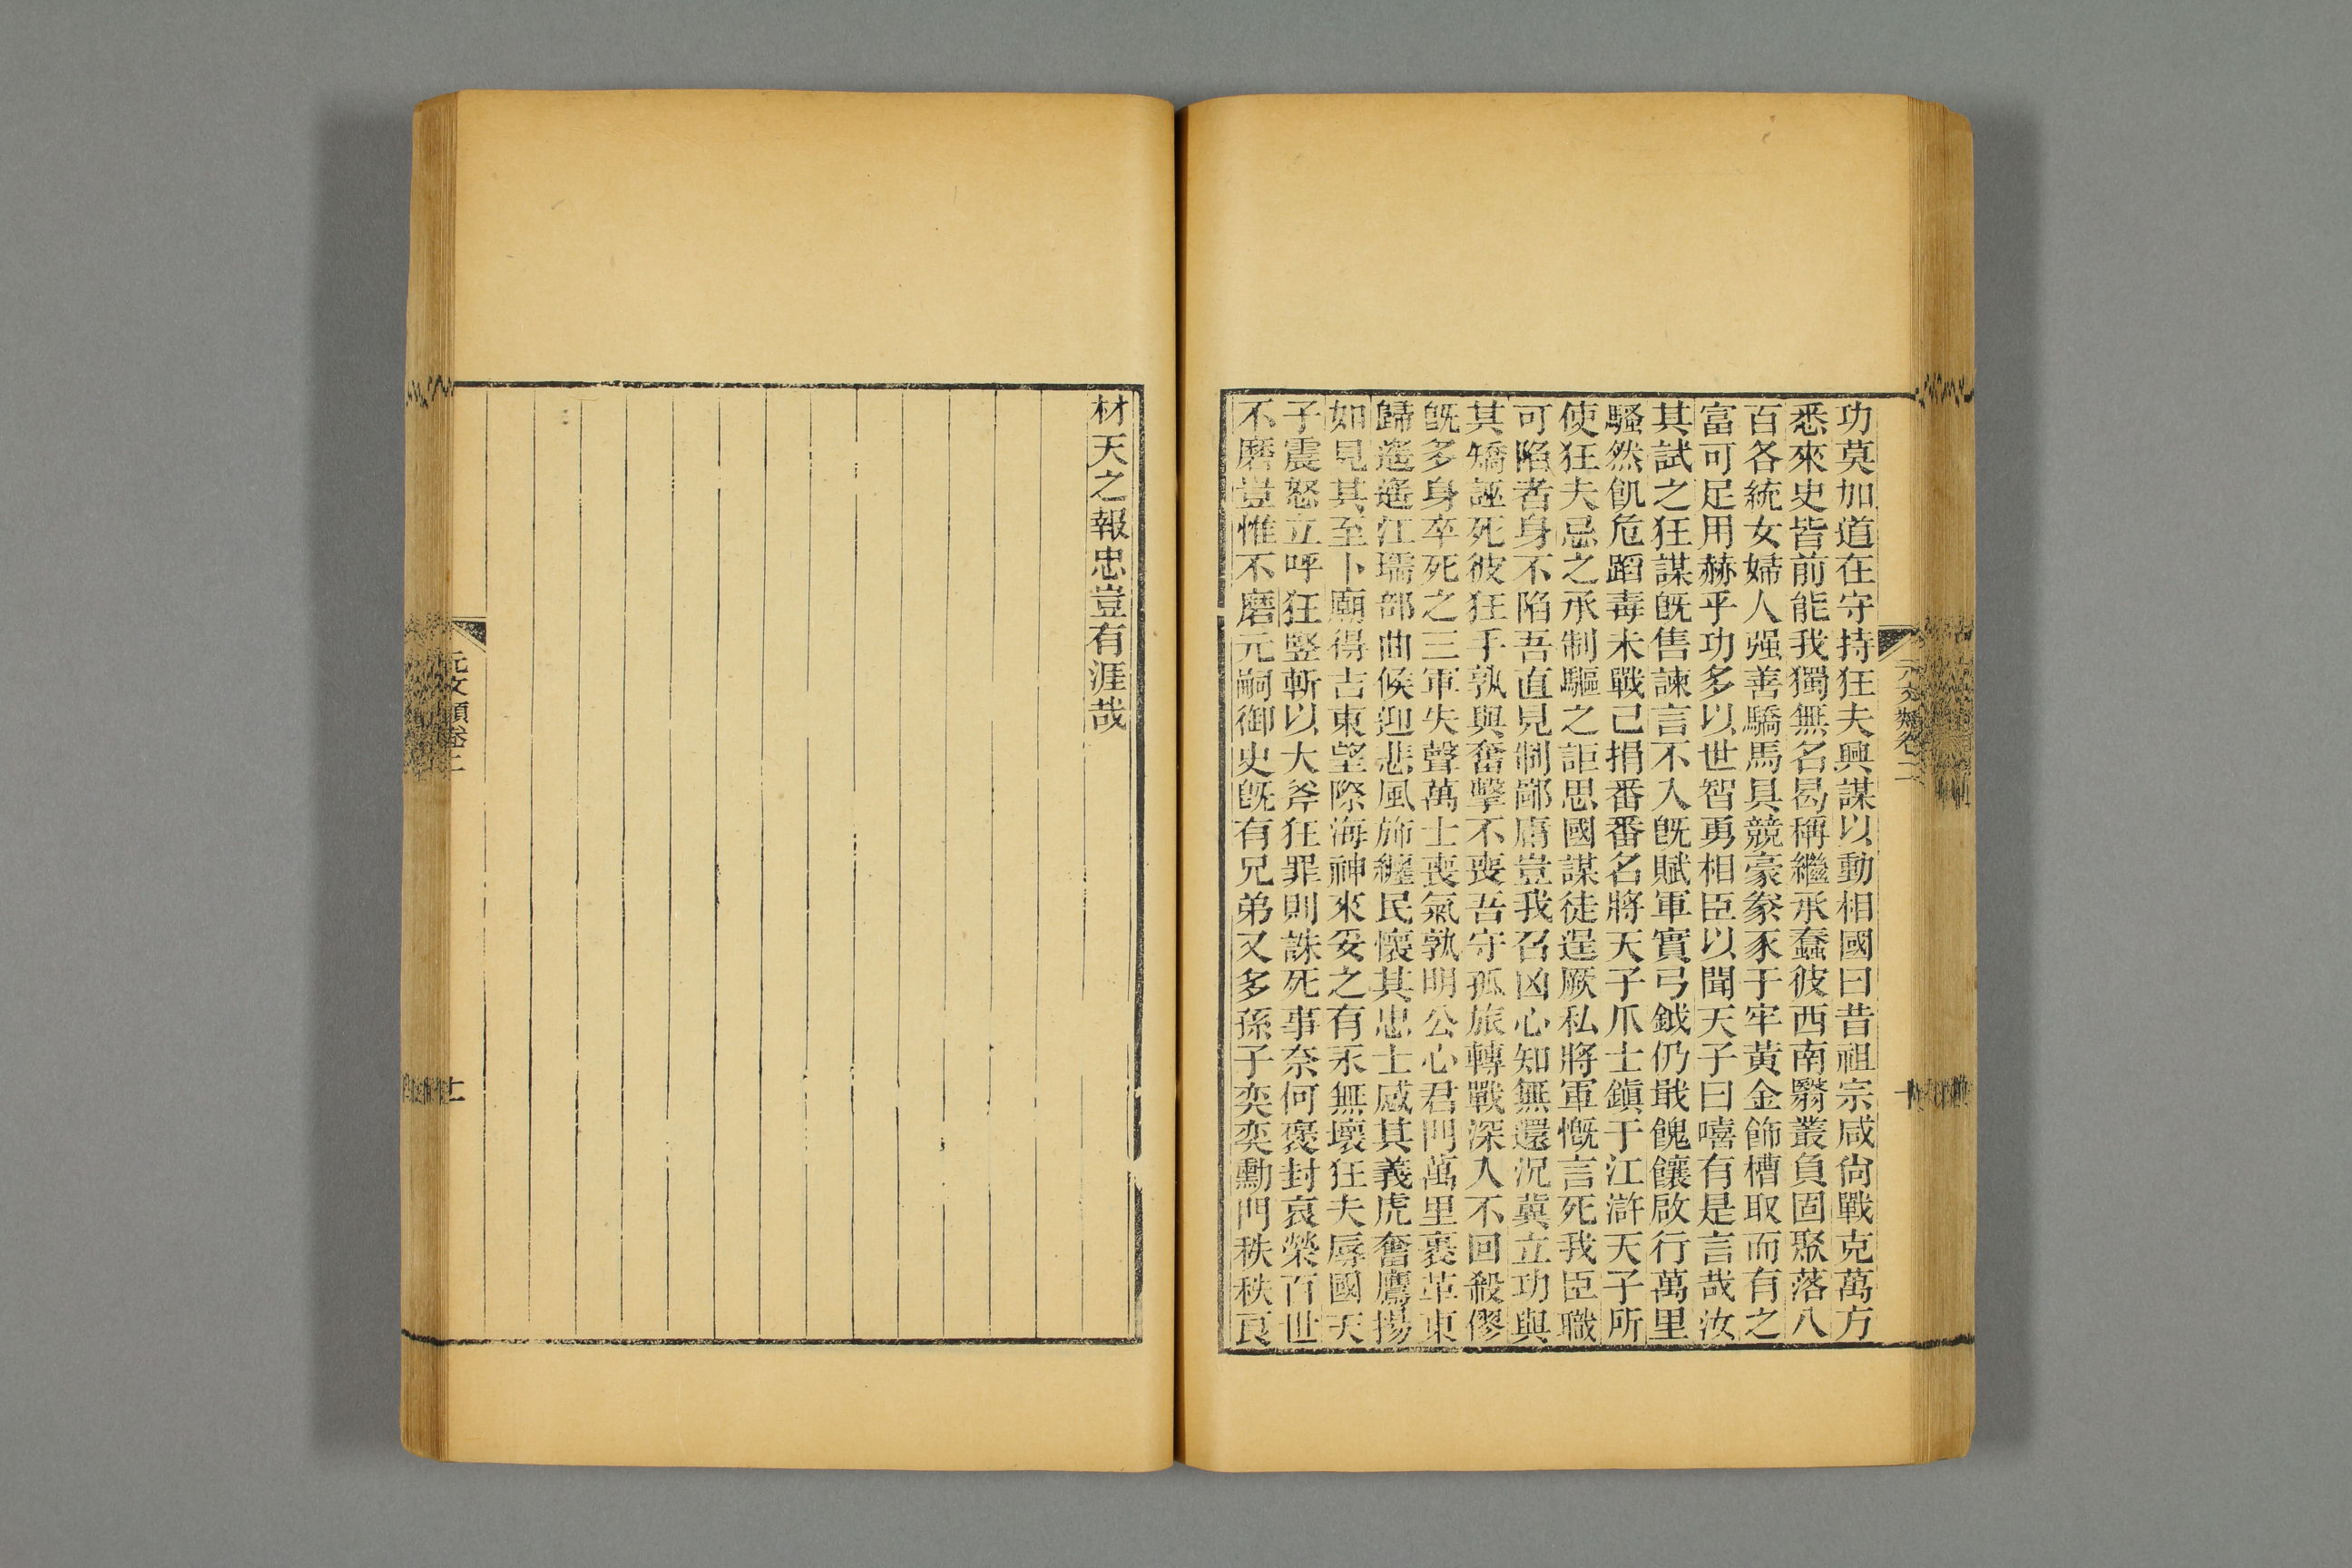 功莫加道在守持狂夫興謀以動相國曰昔祖宗咸尙戰克萬方
悉來史皆前能我獨無名曷稱繼承蠢彼西南翳叢負固聚落八
百各統女婦人强善驕馬具競豪豢豕于牢黃金飾槽取而有之
富可足用赫乎功多以世智勇相臣以聞天子曰嘻有是言哉汝
其試之狂謀旣售諫言不入旣賦軍實弓鉞仍戢餽饟啟行萬里
騷然飢危蹈毒未戰已捐番番名將天子爪士鎭于江滸天子所
使狂夫忌之承制驅之詎思國謀徒逞厥私將軍慨言死我臣職
可陷者身不陷吾直見制鄙庸豈我召凶心知無還況冀立功與
其矯誣死彼狂手孰與奮擊不喪吾守孤旅轉戰深入不回殺僇
旣多身卒死之三軍失聲萬士喪氣孰明公心君門萬里裹革東
歸遙遙江壖部曲候迎悲風旆纏民懷其忠士感其義虎奮鷹揚
如見其至卜廟得吉東望際海神來妥之有永無壞狂夫辱國天
子震怒立呼狂竪斬以大斧狂罪則誅死事奈何褒封哀榮百世
不磨豈惟不磨元嗣御史旣有兄弟又多孫子奕奕勳門秩秩良
元文類卷二
十
材天之報忠豈有涯哉
元文類卷二